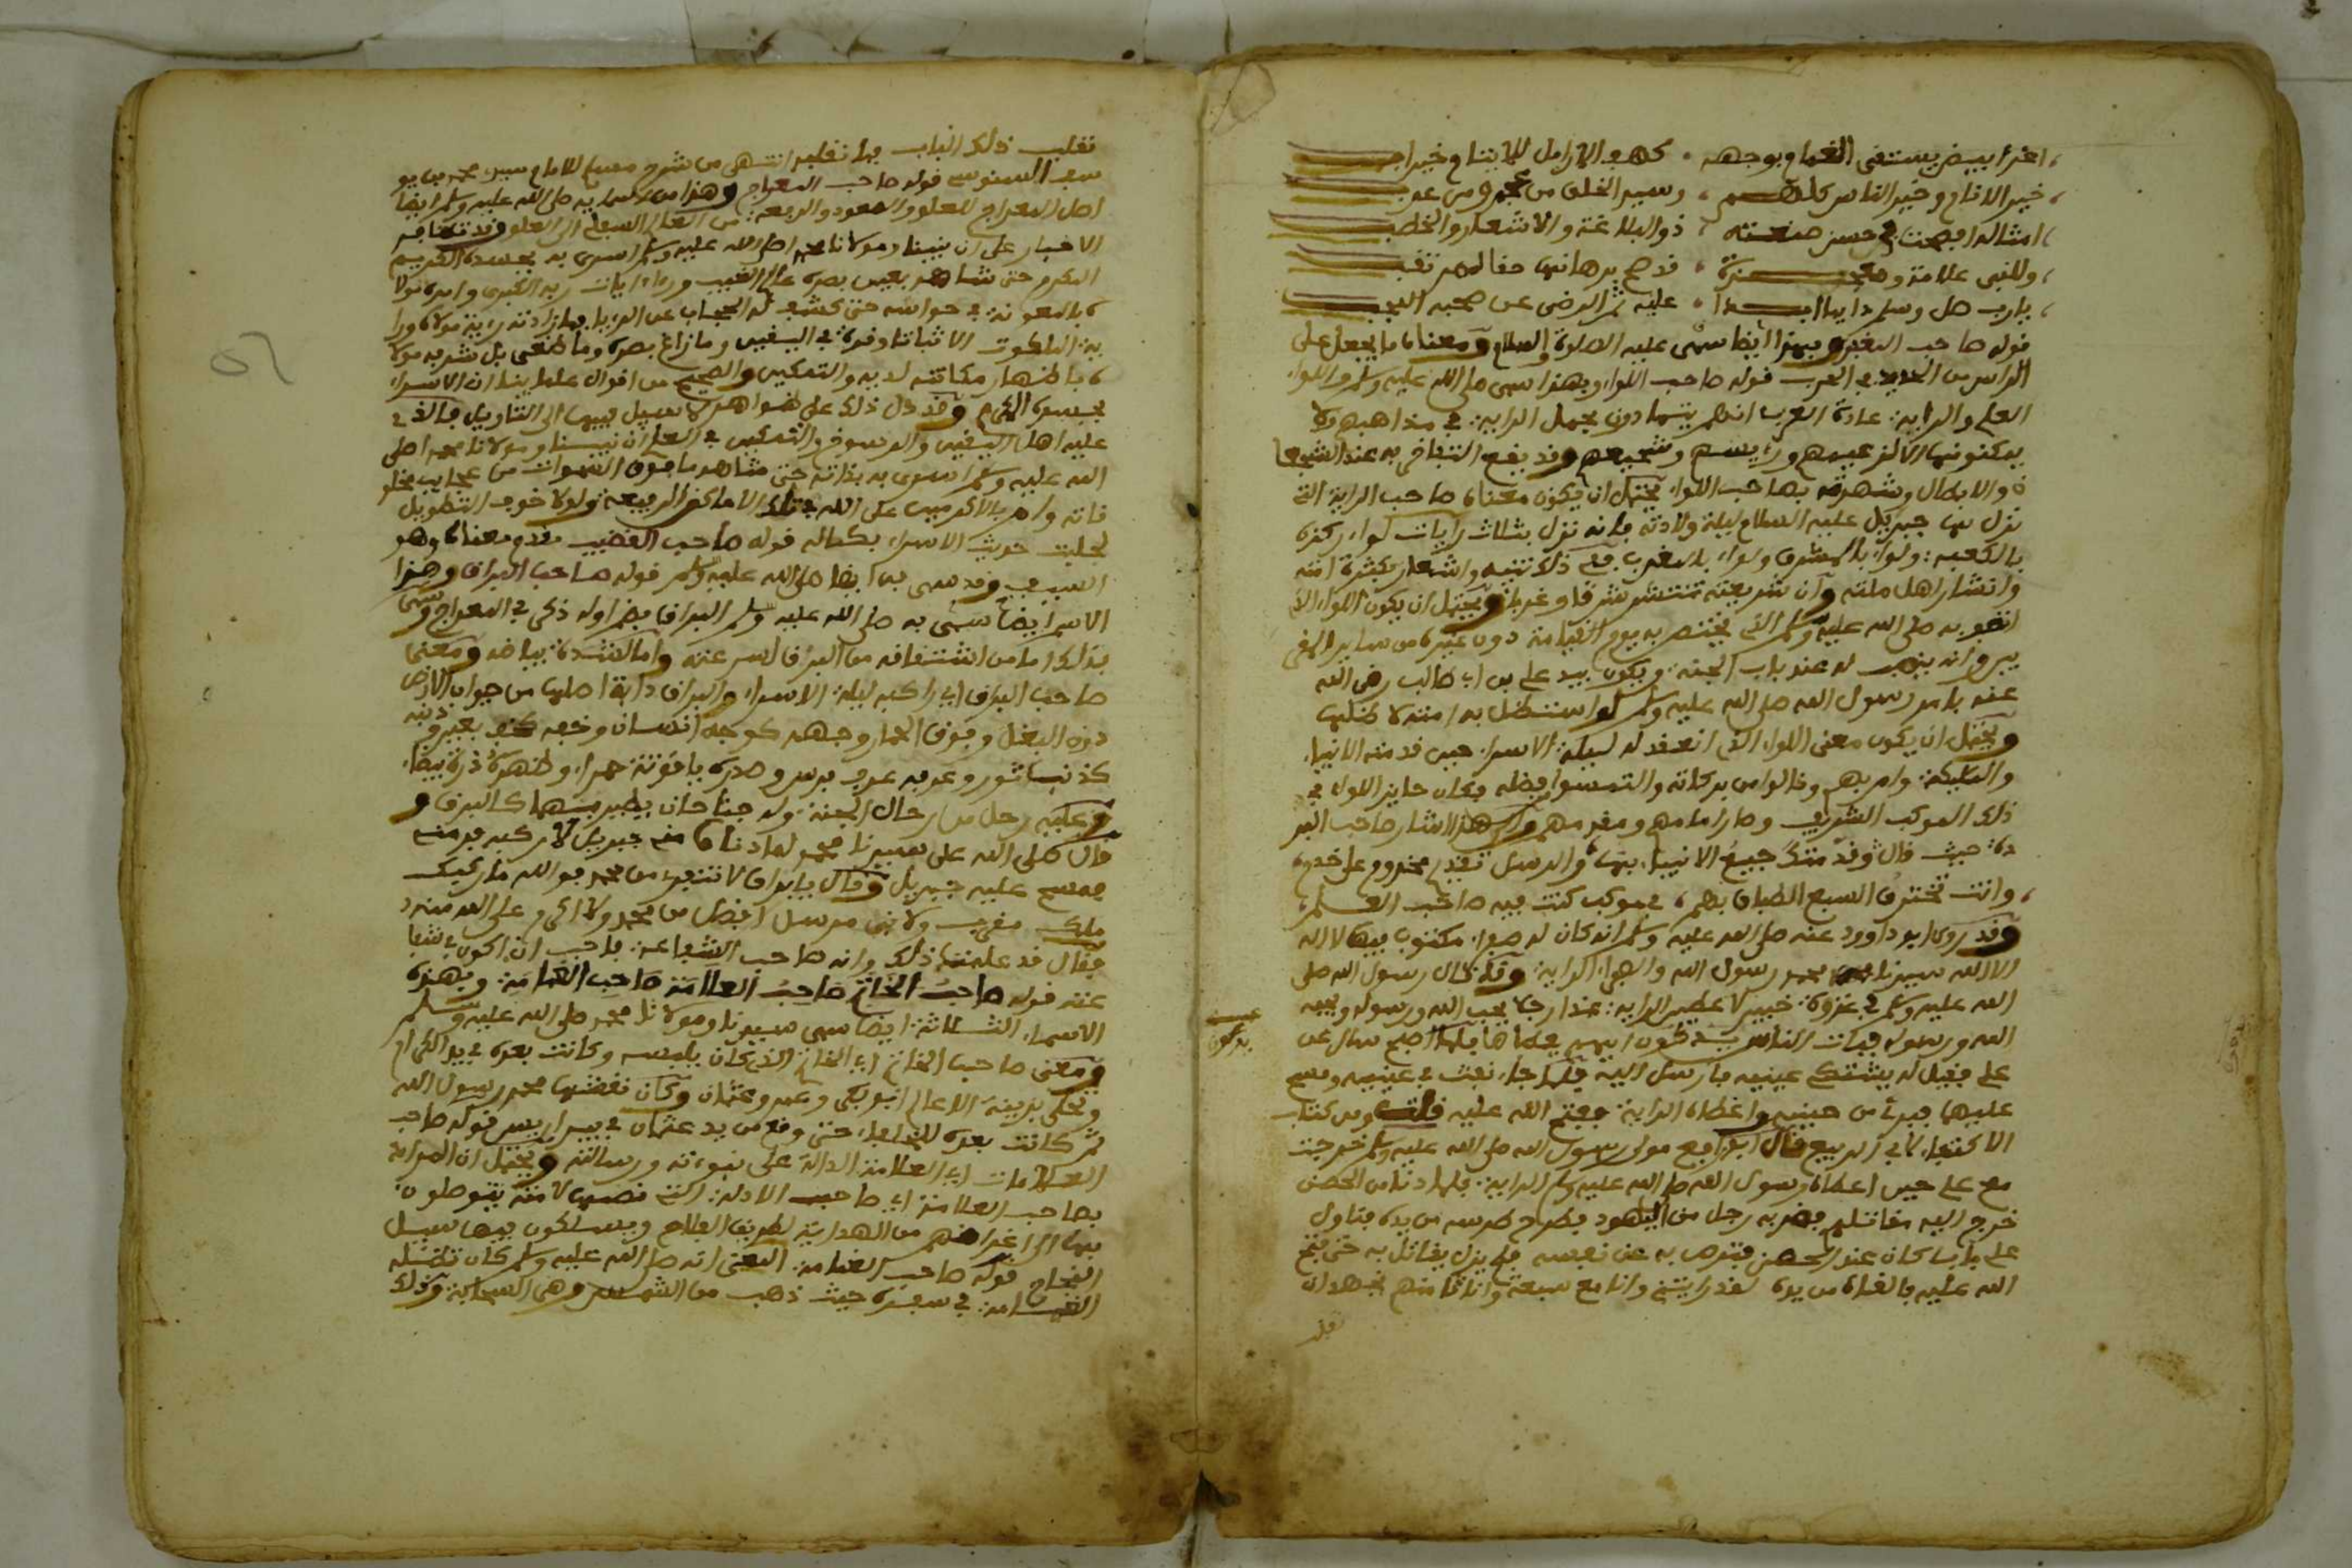 اغر ابيض يستسقى الغمام بوجهه ، كهف الارامل للايتام خير اب
خير الانام وخير الناس كلهم ، وسيد الخلق من عجم ومن عرب
امثاله افصحت في حسن صنعته ، ذو البلاغة والاشعار والخطب
وللنبي علامة ومعجزة ، قد صح برهانها حقا لمرتقب
يارب صل وسلم دايما ابدا ، عليه ثم الرضى عن صحبه النجب
قوله صاحب المغفر وبهذا ايضا سمى عليه الصلوة والسلام ومعناه ما يجعل على
الراس من الحديد في الحرب قوله صاحب اللواء وبهذا سمى صلى الله عليه وسلم واللواء
العلم والراية عادة العرب انهم يتمادون بحمل الراية في مذاهبهم ولا
يمكنونها الا لزعيمهم ورئيسهم وشجيعهم وقد يقع التفاخر به عند الشجعا
ة والابطال وشهرته بصاحب اللواء يحتمل ان يكون معناه صاحب الراية التي
نزل بها جبريل عليه السلام ليلة ولادته فانه نزل بثلاث رايات لواء ركزه
بالكعبة ولواء بالمشرق ولواء بالمغرب ففي ذلك تنبيه واشعار بكثرة امته
وانتشار اهل ملته وان شريعته تنتشر شرقا وغربا ويحتمل ان يكون اللواء الذ
صلى الله عليه وسلم الذي يختص به يوم القيامة دون غيره من ساير
وانه ينصب له عند باب الجنة ويكون بيد علي بن ابي طالب رضي الله
عنه بامر رسول الله صلى الله عليه وسلم لو استظل به امته لاظلها
ويحتمل ان يكون معنى اللواء الذي انعقد له ليلة الاسراء حين قدمته الانبياء
والمليكة وام بهم ونالوا من بركاته والتمسوا فضله فكان حايز اللواء في
ذلك الموكب الشريف وصار امامهم ومقدمهم والى هذا اشار صاحب البر
دة حيث قال وقدمتك جميع الانبياء بها والرسل تقديم مخدوم على خدم
وانت تخترق السبع الطباق بهم ، في موكب كنت فيه صاحب العلم
وقد روى ابو داوود عنه صلى الله عليه وسلم انه كان له صفراء مكتوب فيها لا اله
الا الله سيدنا محمد رسول الله واللواء الراية وقد قال رسول الله صلى
الله عليه وسلم في غزوة خيبر لاعطين الراية غدا رجلا يحب الله ورسوله ويحبه
الله ورسوله فبات الناس يدكون ايهم يعطاها فلما اصبح سال عن
علي فقيل له يشتكي عينيه فارسل اليه فلما جاء نفث في عينيه ومسح
عليهما فبرئ من حينه واعطاه الراية ففتح الله عليه قلت ومن كتاب
الاكتفاء لابي الربيع قال ابو رافع مولى رسول الله صلى الله عليه وسلم خرجت
مع علي حين اعطاه رسول الله صلى الله عليه وسلم الراية فلما دنا من الحصن
خرج اليه مقاتلهم فضربه رجل من اليهود فطرح ترسه من يده فتناول
علي بابا كان عند الحصن فترس به عن نفسه فلم يزل يقاتل به حتى فتح
الله عليه فالقاه من يده لقد رايتني وانا مع سبعة وانا ثامنهم نجهد ان
نقلب ذلك الباب فما نقلبه انتهى من شرح مسلم للامام سيدي محمد بن يو
سف السنوسي قوله صاحب المعراج وهذا من اسمايه صلى الله عليه وسلم ايضا
اصل المعراج للعلو والصعود والرفعة من العالم السفلي الى العلو وقد تضافر
الاخبار على ان نبينا ومولانا محمد صلى الله عليه وسلم اسري به بجسده الكريم
المكرم حتى شاهد بعين بصره عالم الغيب وراء ايات ربه الكبرى وامده مولا
ه بالمعونة في حواسه حتى كشف له الحجاب عن الربا فما زادته رؤية مولاه ورا
ية الملكوت الا ثباتا وقوة في اليقين وما زاغ بصره وما طغى بل شرفه مولا
ه باظهار مكانته لديه والتمكين والصحيح من اقوال علماينا ان الاسراء
بجسده الكريم وقد دل ذلك على ظواهر لا سبيل فيها الى التاويل فالذي
عليه اهل اليقين والرسوخ والتمكين في العلم ان نبينا ومولانا محمد صلى
الله عليه وسلم اسري به بذاته حتى شاهد ما فوق السموات من عجايب مخلو
قاته وام بالاكرمين على الله في تلك الاماكن الرفيعة ولولا خوف التطويل
لجلبت حديث الاسراء بكماله قوله صاحب القضيب تقدم معناه وهو
السيف وقد سمى به ايضا صلى الله عليه وسلم قوله صاحب البراق وهذا
الاسم ايضا سمى به صلى الله عليه وسلم البراق بضم اوله ذكر في المعراج وسمى
بذلك اما من اشتقاقه من البرق لسرعته واما لشدة بياضه ومعنى
صاحب البراق اي راكبه ليلة الاسراء والبراق دابة اصلها من حيوان الارض
دون البغل وفوق الحمار وجهه كوجه انسان وخفه كخف بعير وذنبه
كذنب ثور وعرفه عرف فرس وصدره ياقوتة حمراء وظهره درة بيضاء
وعليه رحل من رحال الجنة وله جناحان يطير بهما كالبرق و
قال صلى الله على سيدنا محمد لما دنا منه جبريل لا ركبه
فمسح عليه جبريل وقال يا براق لا تنفر من محمد فوالله ما ركبك
ملك مقرب ولا نبي مرسل افضل من محمد ولا اكرم على الله منه
فقال قد علمت ذلك وانه صاحب الشفاعة فاحب ان اكون في شفا
عته قوله صاحب الخاتم صاحب العلامة صاحب الغمامة وبهذه
الاسماء الثلاثة ايضا سمى سيدنا ومولانا محمد صلى الله عليه وسلم
ومعنى صاحب الخاتم اي الخاتم الذي كان يلبسه وكانت بعده في يد الكرام
وتحلى بزينة الاعالي ابو بكر وعمر وعثمان وكان نقشها محمد رسول الله
ثم كانت بعده للخلفاء حتى وقع من يد عثمان في بير اريس قوله صاحب
العلامات اي العلامة الدالة على نبوءته ورسالته ويحتمل ان المراد
بصاحب العلامة اي صاحب الادلة التي نصبها لامته يتوصلون
بها الى اغراضهم من الهداية لطريق الفلاح ويسلكون فيها سبيل
النجاح قوله صاحب الغمامة المعنى انه صلى الله عليه وسلم كان تظلله
الغمامة في سفره حيث ذهب من الشمس وهي السحابة وذلك